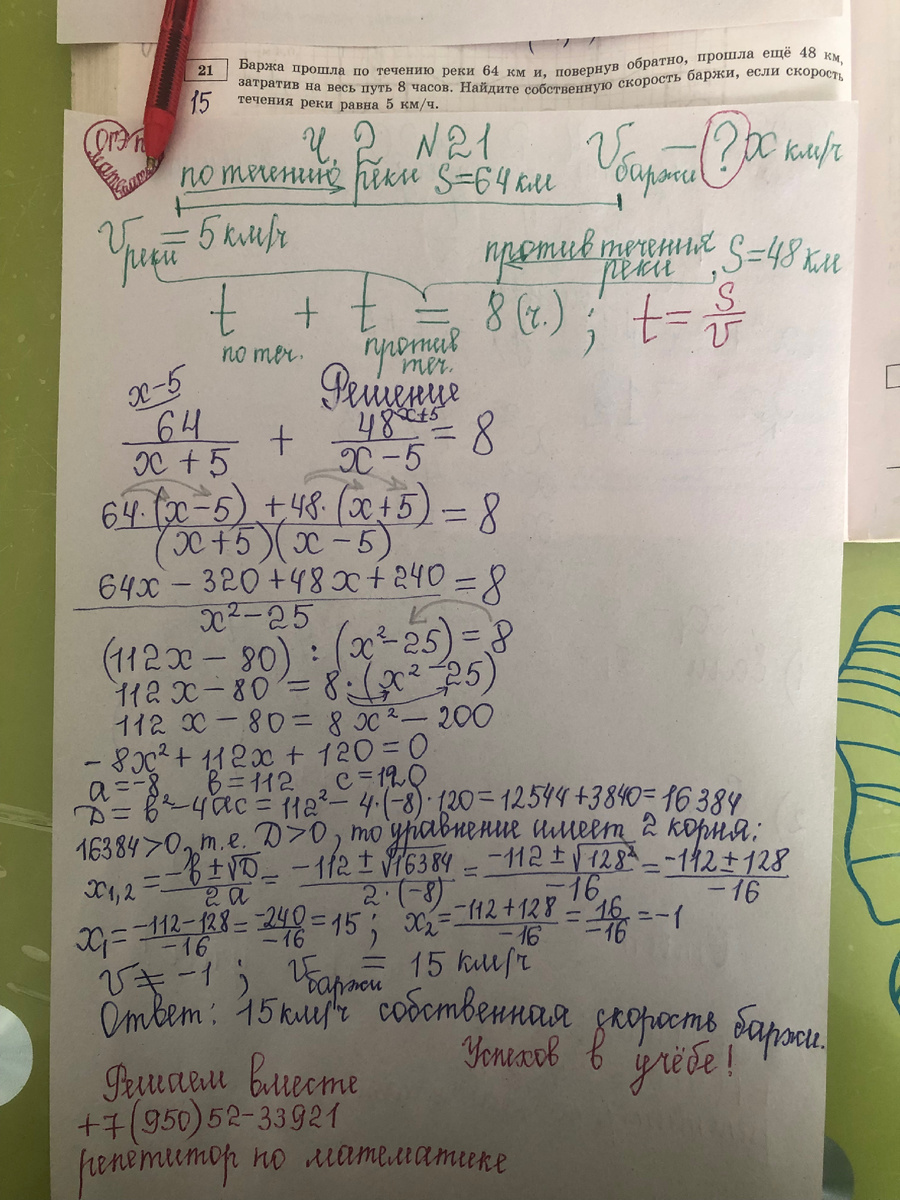 21 Баржа прошла по течению реки 64 км и, повернув обратно, прошла ещё 48 км,
затратив на весь путь 8 часов. Найдите собственную скорость баржи, если скорость
15 течения реки равна 5 км/ч.
ОГЭ
математика
Ч. 2 №21 V баржи — ? x км/ч
по течению реки S=64 км
V реки = 5 км/ч
против течения реки, S=48 км
t по теч. + t против теч. = 8 (ч.) ; t = S/V
Решение
x-5 x+5
64/(x+5) + 48/(x-5) = 8
(64·(x-5) + 48·(x+5))/((x+5)(x-5)) = 8
(64x - 320 + 48x + 240)/(x²-25) = 8
(112x - 80) : (x²-25) = 8
112x - 80 = 8·(x²-25)
112x - 80 = 8x² - 200
-8x² + 112x + 120 = 0
a = -8 b = 112 c = 120
D = b²-4ac = 112² - 4·(-8)·120 = 12544 + 3840 = 16384
16384>0, т.е. D>0, то уравнение имеет 2 корня:
x1,2 = (-b±√D)/2a = (-112±√16384)/(2·(-8)) = (-112±√128²)/-16 = (-112±128)/-16
x1 = (-112-128)/-16 = -240/-16 = 15 ; x2 = (-112+128)/-16 = 16/-16 = -1
V ≠ -1 ; V баржи = 15 км/ч
Ответ: 15 км/ч собственная скорость баржи.
Успехов в учёбе!
Решаем вместе
+7(950)52-33921
репетитор по математике